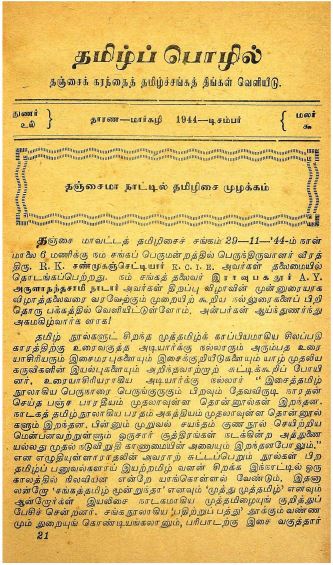 தமிழ்ப் பொழில்
தஞ்சைக் கரந்தைத் தமிழ்ச்சங்கத் திங்கள் வெளியீடு.
துணர் உ0
தாரண—மார்கழி 1944—டிசம்பர்
மலர் ௯
தஞ்சைமா நாட்டில் தமிழிசை முழக்கம்
தஞ்சை மாவட்டத் தமிழிசைச் சங்கம் 29—11—'44-ம் நாள்
மாலை 6 மணிக்கு நம் சங்கப் பெருமன்றத்தில் பெருந்திருவாளர் விரத்
திரு. R. K. சண்முகஞ்செட்டியார் K. C. I. E. அவர்கள் தலைமையில்
தொடங்கப்பெற்றது. நம் சங்கத் தலைவர் இராவுபகதூர் A. Y.
அருளானந்தசாமி நாடார் அவர்கள் திறப்பு விழாவின் முன்னுரையாக
விழாத்தலைவரை வரவேற்கும் முறையிற் கூறிய நல்லுரைகளைப் பிறி
தொரு பக்கத்தில் வெளியிட்டுள்ளோம். அன்பர்கள் ஆய்ந்துணர்ந்து
அகமகிழ்வார்களாக!
தமிழ் நூல்களுட் சிறந்த முத்தமிழ்க் காப்பியமாகிய சிலப்பதி
காரத்திற்கு உரைவகுத்த அடியார்க்கு நல்லாரும் அரும்பத உரை
யாசிரியரும் இசைமரபுகளையும் இசைக்குறியீடுகளையும் யாழ் முதலிய
கருவிகளின் இயல்புகளையும் அறிந்தவாற்றாற் சுட்டிக்கூறிப் போயி
னார். உரையாசிரியராகிய அடியார்க்கு நல்லார் "இசைத்தமிழ்
நூலாகிய பெருநாரை பெருங்குருகும் பிறவும் தேவவிருடி நாரதன்
செய்த பஞ்ச பாரதீயம் முதலாவுள்ள தொன்னூல்கள் இறந்தன.
நாடகத் தமிழ் நூலாகிய பரதம் அகத்தியம் முதலாவுள்ள தொன்னூல்
களும் இறந்தன. பின்னும் முறுவல் சயந்தம் குண நூல் செயிற்றிய
மென்பனவற்றுள்ளும் ஒருசார் சூத்திரங்கள் நடக்கின்ற அத்துணை
யல்லது முதல் நடுவிறுதி காணாமையின் அவையும் இறந்தனபோலும்"
என எழுதியுள்ளாராதலின் அவராற் சுட்டப்பெறும் நூல்கள் பிற
தமிழ்ப் பனுவல்களாய் இயற்றமிழ் வளன் சிறக்க இந்நாட்டில் ஒரு
காலத்தில் நிலவியன என்றே யாங்கொள்ள வேண்டும். இதனா
லன்றோ 'சங்கத்தமிழ் மூன்றுந்தா' எனவும் 'முத்து முத்தமிழ்' எனவும்
ஆன்றோர்கள் இயலிசை நாடகமாகிய முத்தமிழையுங் குறித்துப்
பேசிச் சென்றனர். சங்க நூலாகிய 'பதிற்றுப் பத்து' தூக்கும் வண்ண
மும் துறையுங் கொண்டியங்கலானும், பரிபாடற்கு இசை வகுத்தார்
21